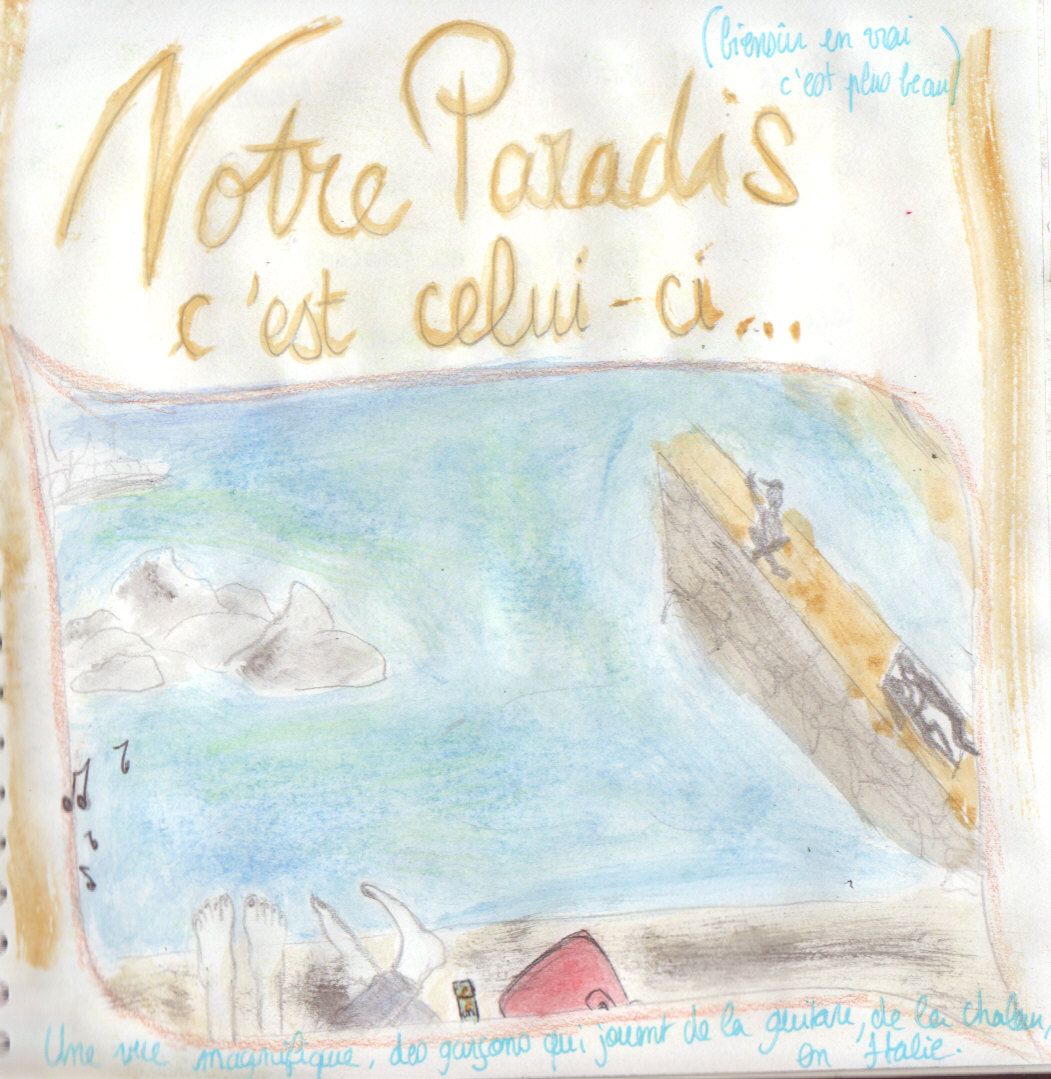 (biensûr en vrai
c'est plus beau)
Notre Paradis
c'est celui-ci...
Une vue magnifique, des garçons qui jouent de la guitare, de la chaleur,
en Italie.